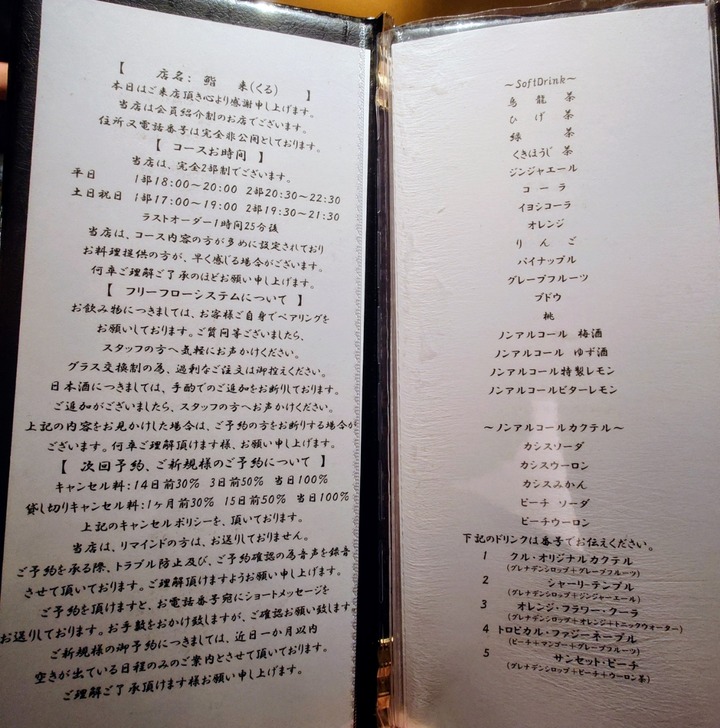 【 店名：鮨 来(くる) 】
本日はご来店頂き心より感謝申し上げます。
当店は会員紹介制のお店でございます。
住所又電話番号は完全非公開としております。
【 コースお時間 】
当店は、完全2部制でございます。
平日 1部18:00～20:00 2部20:30～22:30
土日祝日 1部17:00～19:00 2部19:30～21:30
ラストオーダー1時間25分後
当店は、コース内容の方が多めに設定されており
お料理提供の方が、早く感じる場合がございます。
何卒ご理解ご了承のほどお願い申し上げます。
【 フリーフローシステムについて 】
お飲み物につきましては、お客様ご自身でペアリングを
お願いしております。ご質問等ございましたら、
スタッフの方へ気軽にお声かけください。
グラス交換制の為、過剰なご注文は御控えください。
日本酒につきましては、手酌でのご追加をお断りしております。
ご追加がございましたら、スタッフの方へお声かけください。
上記の内容をお見かけした場合は、ご予約の方をお断りする場合が
ございます。何卒ご理解頂けます様、お願い申し上げます。
【 次回予約、ご新規様のご予約について 】
キャンセル料:14日前30% 3日前50% 当日100%
貸し切りキャンセル料:1ヶ月前30% 15日前50% 当日100%
上記のキャンセルポリシーを、頂いております。
当店は、リマインドの方は、お送りしておりません。
ご予約を承る際、トラブル防止及び、ご予約確認の為音声を録音
させて頂いております。ご理解頂けますようお願い申し上げます。
ご予約を頂けますと、お電話番号宛にショートメッセージを
お送りしております。お手数をおかけ致しますが、ご確認お願い致します。
ご新規様の御予約につきましては、近日一か月以内
空きが出ている日程のみのご案内とさせて頂いております。
ご理解ご了承頂けます様お願い申し上げます。
～SoftDrink～
烏龍茶
ひげ茶
緑茶
くきほうじ茶
ジンジャエール
コーラ
イヨシコーラ
オレンジ
りんご
パイナップル
グレープフルーツ
ブドウ
桃
ノンアルコール 梅酒
ノンアルコール ゆず酒
ノンアルコール特製レモン
ノンアルコールビターレモン
～ノンアルコールカクテル～
カシスソーダ
カシスウーロン
カシスみかん
ピーチ ソーダ
ピーチウーロン
下記のドリンクは番号でお伝えください。
1 クル・オリジナルカクテル
(グレナデンシロップ+グレープフルーツ)
2 シャーリーテンプル
(グレナデンシロップ+ジンジャーエール)
3 オレンジ・フラワー・クーラ
(グレナデンシロップ+オレンジ+トニックウォーター)
4 トロピカル・ファジーネーブル
(ピーチ+マンゴー+グレープフルーツ)
5 サンセット・ピーチ
(グレナデンシロップ+ピーチ+ウーロン茶)